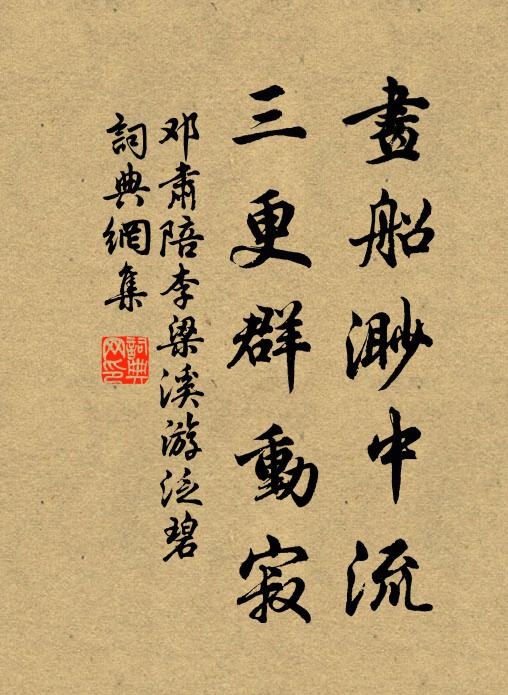 畫船渺中流
三更群動寂
邓肅陪李梁溪游泛碧
詞典網集
詞典網印